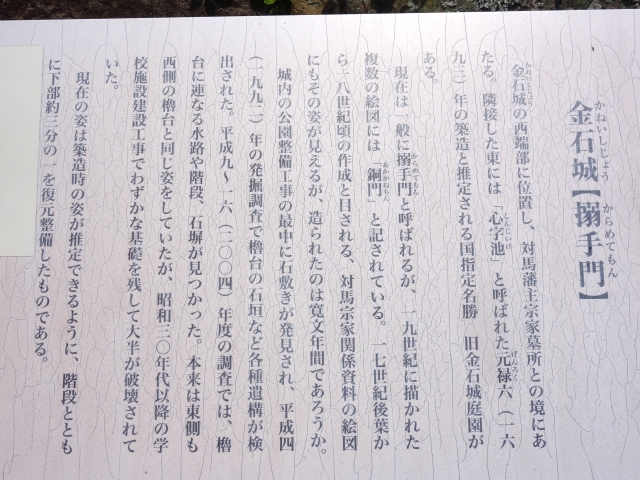 金石城【搦手門】
かねいしじょう からめてもん
金石城の西端部に位置し、対馬藩主宗家墓所との境にあ
たる。隣接した東には「心字池」と呼ばれた元禄六（一六
九三）年の築造と推定される国指定名勝 旧金石城庭園が
ある。
現在は一般に搦手門と呼ばれるが、一九世紀に描かれた
複数の絵図には「銅門」と記されている。一七世紀後葉か
ら一八世紀頃の作成と目される、対馬宗家関係資料の絵図
にもその姿が見えるが、造られたのは寛文年間であろうか。
城内の公園整備工事の最中に石敷きが発見され、平成四
（一九九二）年の発掘調査で櫓台の石垣など各種遺構が検
出された。平成九～一六（二〇〇四）年度の調査では、櫓
台に連なる水路や階段、石塀が見つかった。本来は東側も
西側の櫓台と同じ姿をしていたが、昭和三〇年代以降の学
校施設建設工事でわずかな基礎を残して大半が破壊されて
いた。
現在の姿は築造時の姿が推定できるように、階段ととも
に下部約三分の一を復元整備したものである。